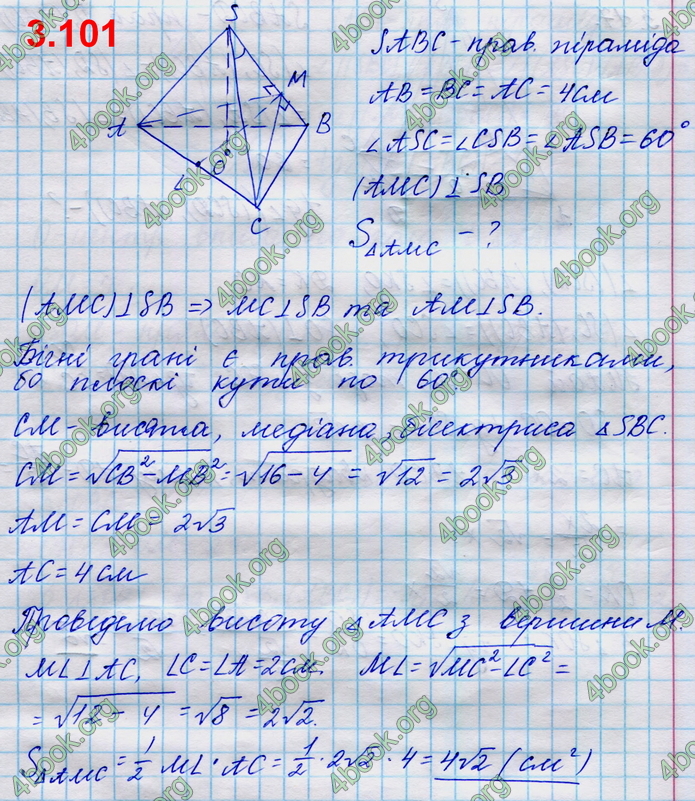 3.101
S
M
A
B
O
L
C
SABC - прав. піраміда
AB = BC = AC = 4см
∠ASC = ∠CSB = ∠ASB = 60°
(AMC) ⊥ SB
S△AMC - ?
(AMC) ⊥ SB => MC ⊥ SB та AM ⊥ SB.
Бічні грані є прав. трикутниками,
бо плоскі кути по 60°
CM - висота, медіана, бісектриса △SBC.
CM = √CB² - MB² = √16 - 4 = √12 = 2√3
AM = CM = 2√3
AC = 4см
Проведемо висоту △AMC з вершини M.
ML ⊥ AC, LC = LA = 2см. ML = √MC² - LC² =
= √12 - 4 = √8 = 2√2.
S△AMC = 1/2 ML · AC = 1/2 · 2√2 · 4 = 4√2 (см²)
4book.org